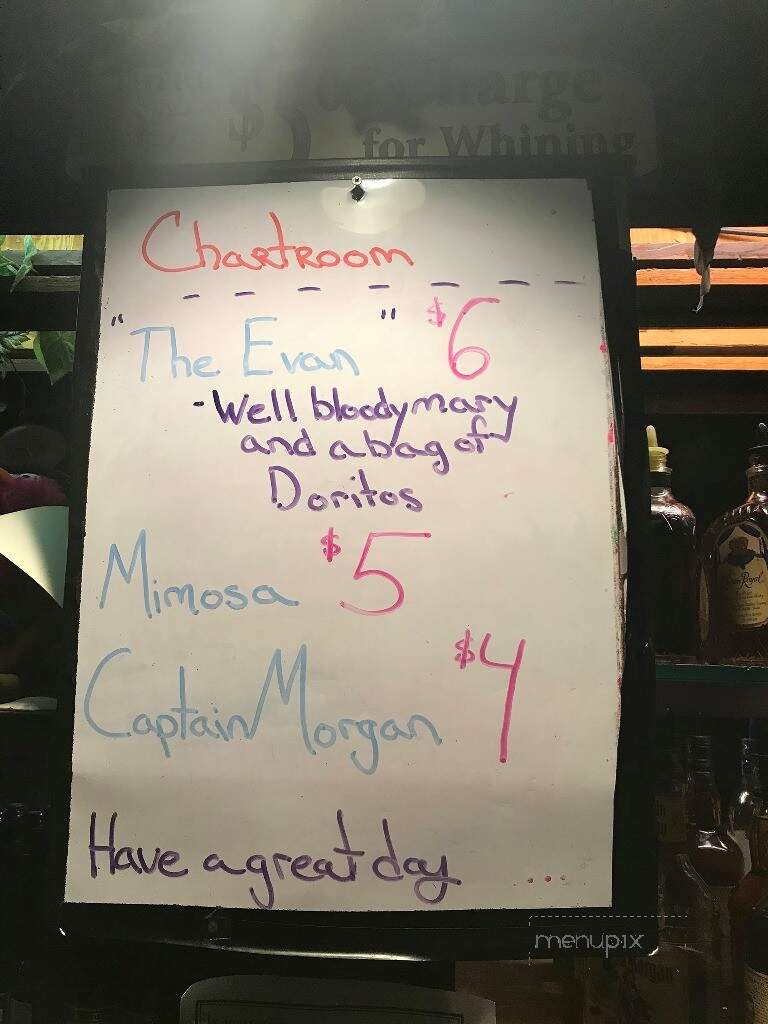 Charge
for Whining
Chartroom
"The Evan" $6
- Well bloody mary
and a bag of
Doritos
Mimosa $5
Captain Morgan $4
Have a great day ...
menupix